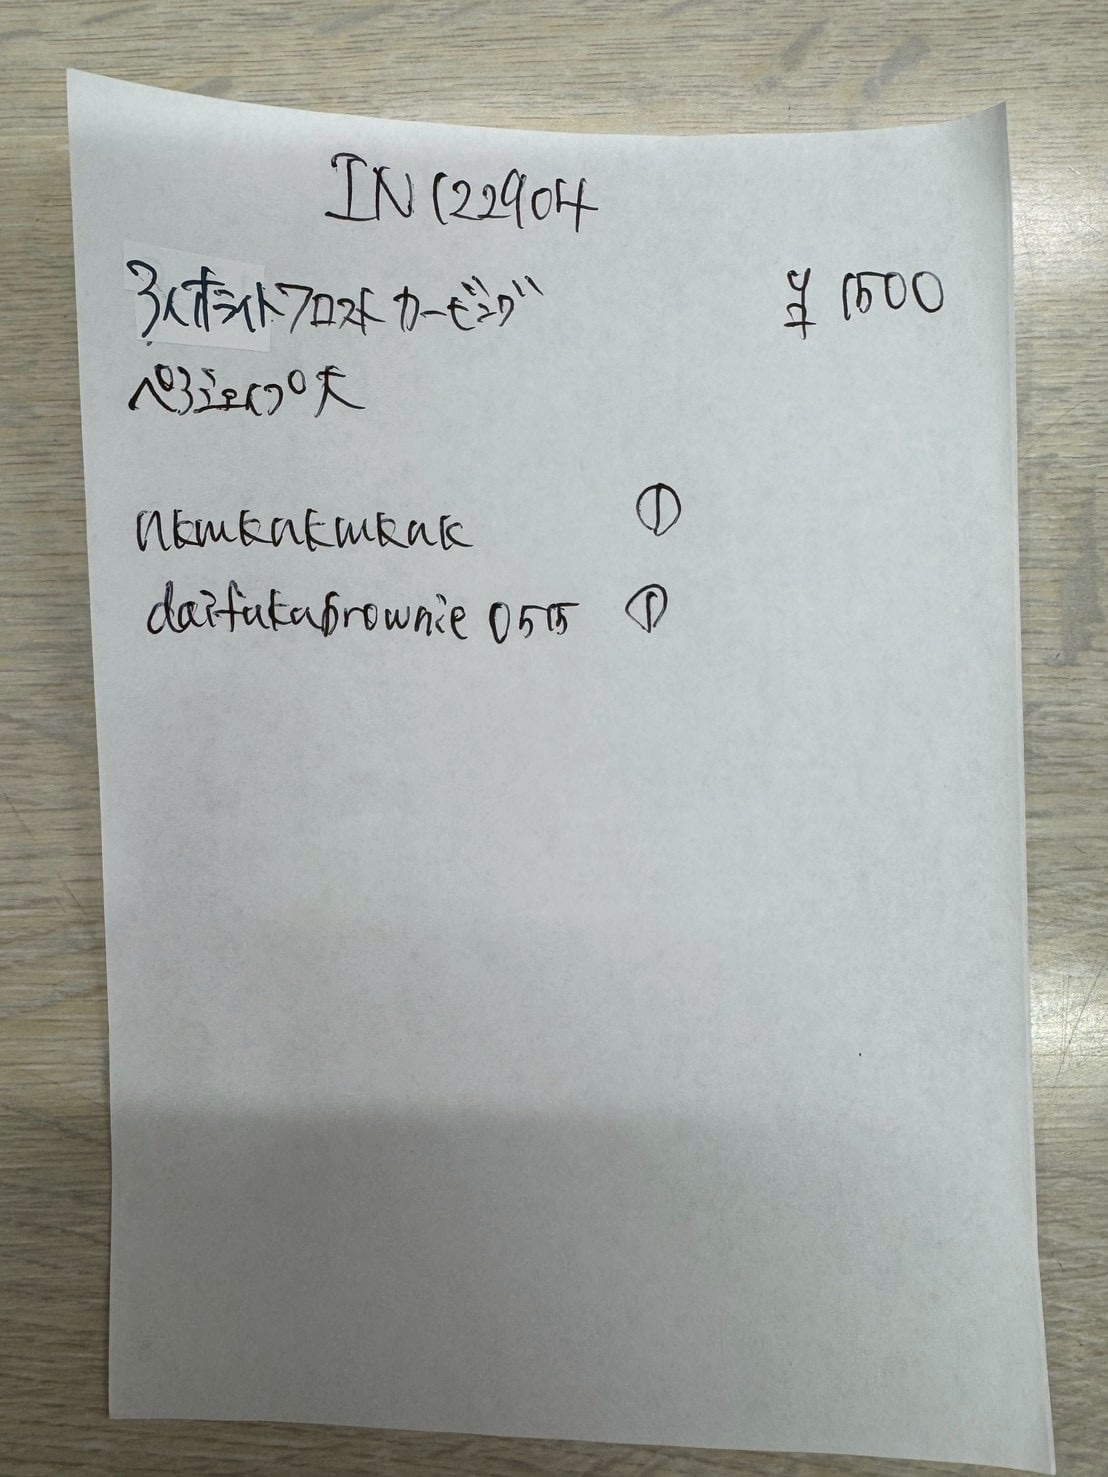 IN122904
ろ人ポライトフロスト カービング ¥1500
nkmknkmknk ①
daifukubrownie 0515 ①